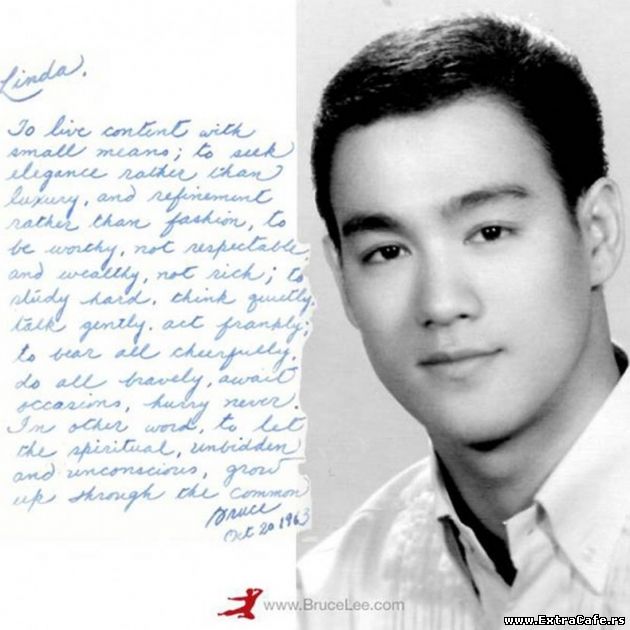 Linda,
To live content with
small means; to seek
elegance rather than
luxury, and refinement
rather than fashion, to
be worthy, not respectable,
and wealthy, not rich; to
study hard, think quietly,
talk gently, act frankly;
to bear all cheerfully,
do all bravely, await
occasions, hurry never.
In other word, to let
the spiritual, unbidden
and unconscious, grow
up through the common
Bruce
Oct 20 1963
www.BruceLee.com
www.ExtraCafe.rs